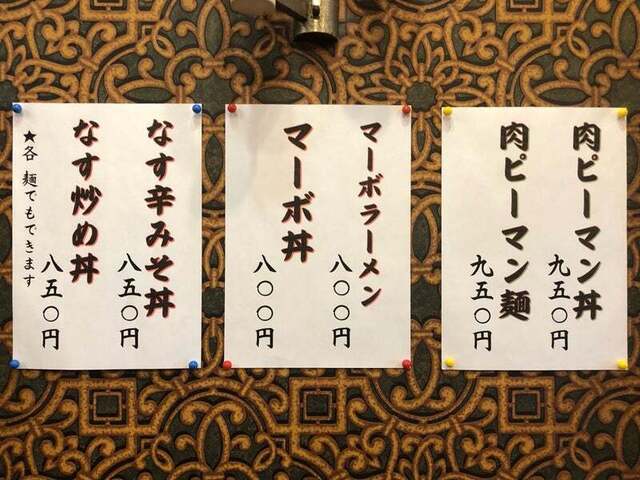 肉ピーマン丼
九五〇円
肉ピーマン麺
九五〇円
マーボラーメン
八〇〇円
マーボ丼
八〇〇円
なす辛みそ丼
八五〇円
なす炒め丼
八五〇円
★各 麺でもできます